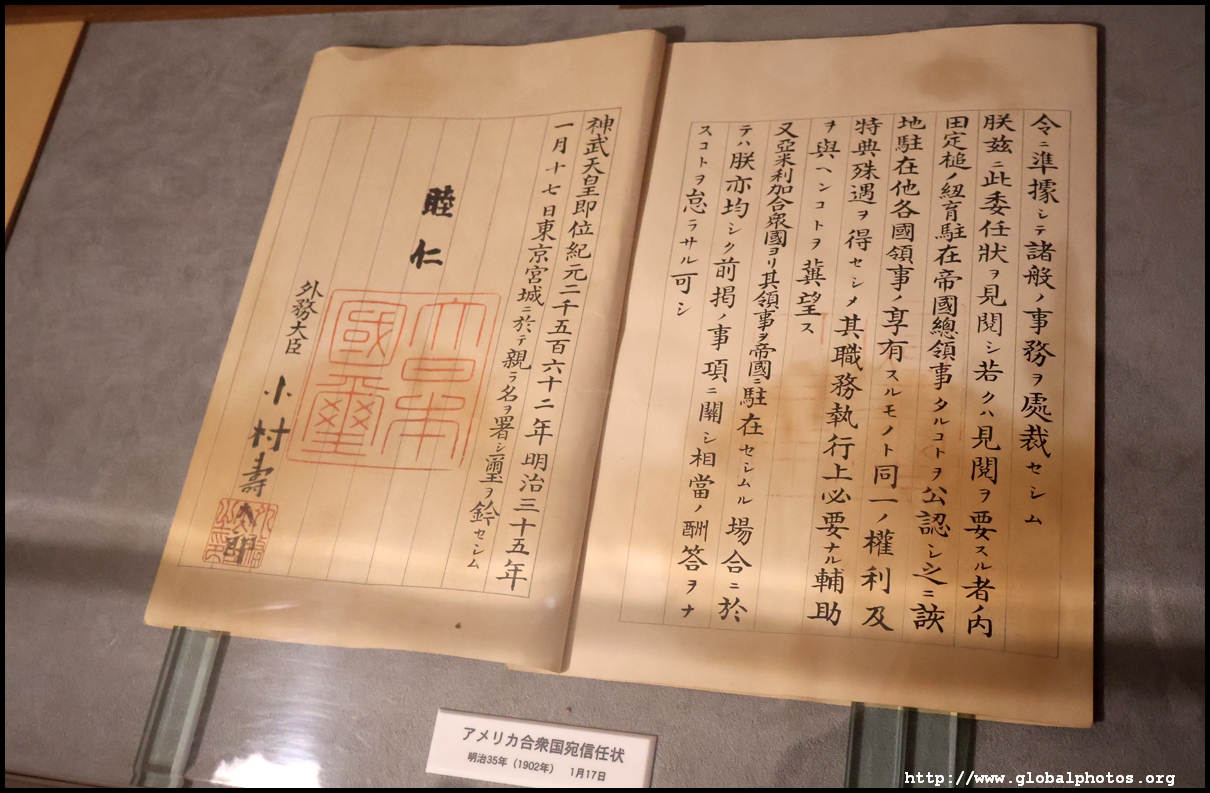 令ニ準據シテ諸般ノ事務ヲ處裁セシム
朕玆ニ此委任狀ヲ見閲シ若クハ見閲ヲ要スル者ノ内
田定槌ノ紐育駐在帝國總領事タルコトヲ公認シ之ニ該
地駐在他各國領事ノ享有スルモノト同一ノ權利及
特典殊遇ヲ得セシメ其職務執行上必要ナル輔助
ヲ與ヘンコトヲ冀望ス
又亞米利加合衆國ヨリ其領事ヲ帝國ニ駐在セシムル場合ニ於
テハ朕亦均シク前揭ノ事項ニ關シ相當ノ酬答ヲナ
スコトヲ怠ラサル可シ
神武天皇即位紀元二千五百六十二年明治三十五年
一月十七日東京宮城ニ於テ親ラ名ヲ署シ璽ヲ鈐セシム
睦仁
大日本
國璽
外務大臣 小村壽太郎
アメリカ合衆国宛信任状
明治35年(1902年) 1月17日
http://www.globalphotos.org